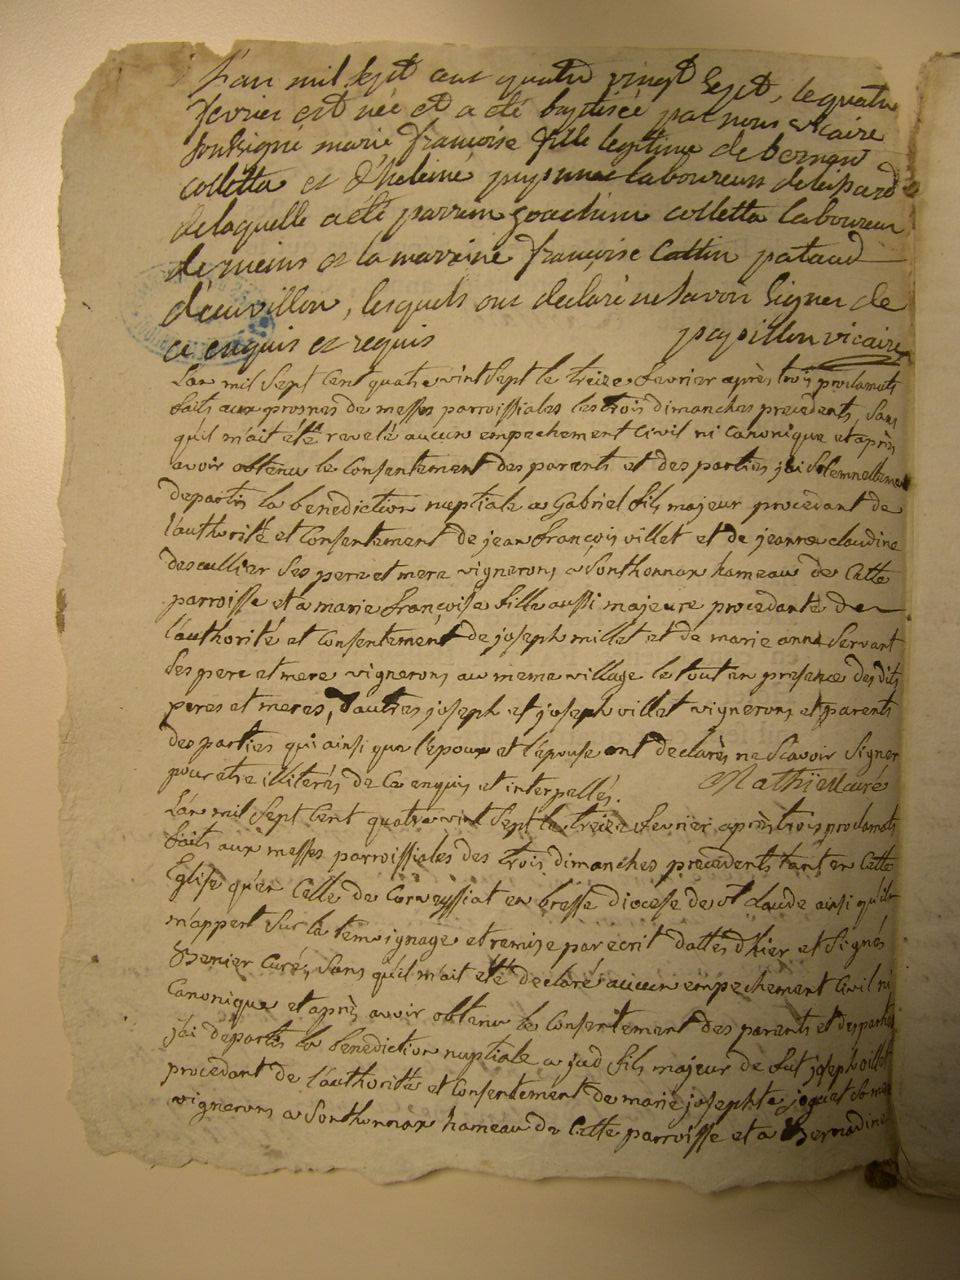 L'an mil sept cent quatre vingt sept, le quatre
fevrier est née et a été baptisée par nous vicaire
soussigné marie françoise fille legitime de bernard
colletta et d'heleine laboureurs
de laquelle a été parrein joachim colletta laboureur
de et la marreine françoise Cattin pataud
lesquels ont declaré ne savoir signer de
ce enquis et requis papillon vicaire
L'an mil sept cent quatre vint sept le treize fevrier après trois proclamats
faits aux prosnes de messes parroissiales les trois dimanches precedents, sans
qu'il m'ait été revelé aucun empechement civil ni canonique et après
avoir obtenu le consentement des parents et des parties j'ai solemnellement
departis la benediction nuptiale a Gabriel fils majeur procedant de
l'authorité et consentement de jean françois villet et de jeanne claudine
descullier ses pere et mere vignerons a Sonthonnax hameau de cette
parroisse et a marie françoise fille aussi majeure procedante de
l'authorité et consentement de joseph millet et de marie anne Servant
ses pere et mere vignerons au meme village le tout en presence des dits
peres et meres, d'autres joseph et joseph villet vignerons et parents
des parties qui ainsi que l'epoux et l'épouse ont declarés ne scavoir signer
pour etre illiterés de ce enquis et interpellés. Mathieu curé
L'an mil sept cent quatre vint sept le treize fevrier après trois proclamats
faits aux messes parroissiales des trois dimanches precedents tant en cette
Eglise qu'en celle de Corveyssiat en bresse diocese de st Claude ainsi qu'il
m'appert sur le temoignage et remise par ecrit dattes d'hier et signés
curé, sans qu'il m'ait été declaré aucun empechement civil ni
canonique et après avoir obtenu le consentement des parents et des parties
j'ai departis la benediction nuptiale a jud fils majeur de fut joseph villet
procedant de l'authorité et consentement de marie josephte
vignerons a Sonthonnax hameau de cette parroisse et a Bernadine